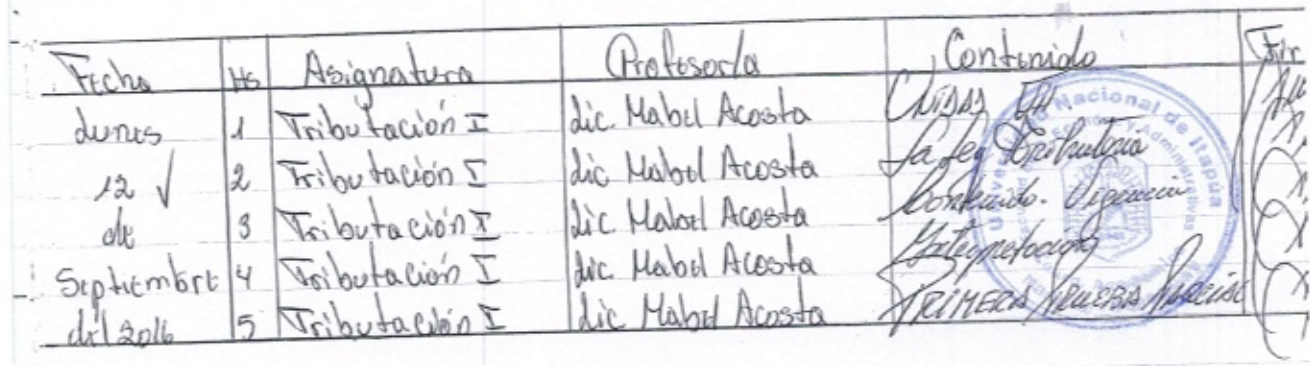 Fecha Hs Asignatura Profesor/a Contenido Fir
Lunes 1 Tributación I Lic. Mabel Acosta Unidad III
12 ✓ 2 Tributación I Lic Mabel Acosta La Ley Tributaria
de 3 Tributación I Lic Mabel Acosta Contenido. Vigencia
Septiembre 4 Tributación I Lic. Mabel Acosta Interpretación
del 2016 5 Tributación I Lic Mabel Acosta PRIMERA PRUEBA PARCIAL
Universidad Nacional de Itapúa